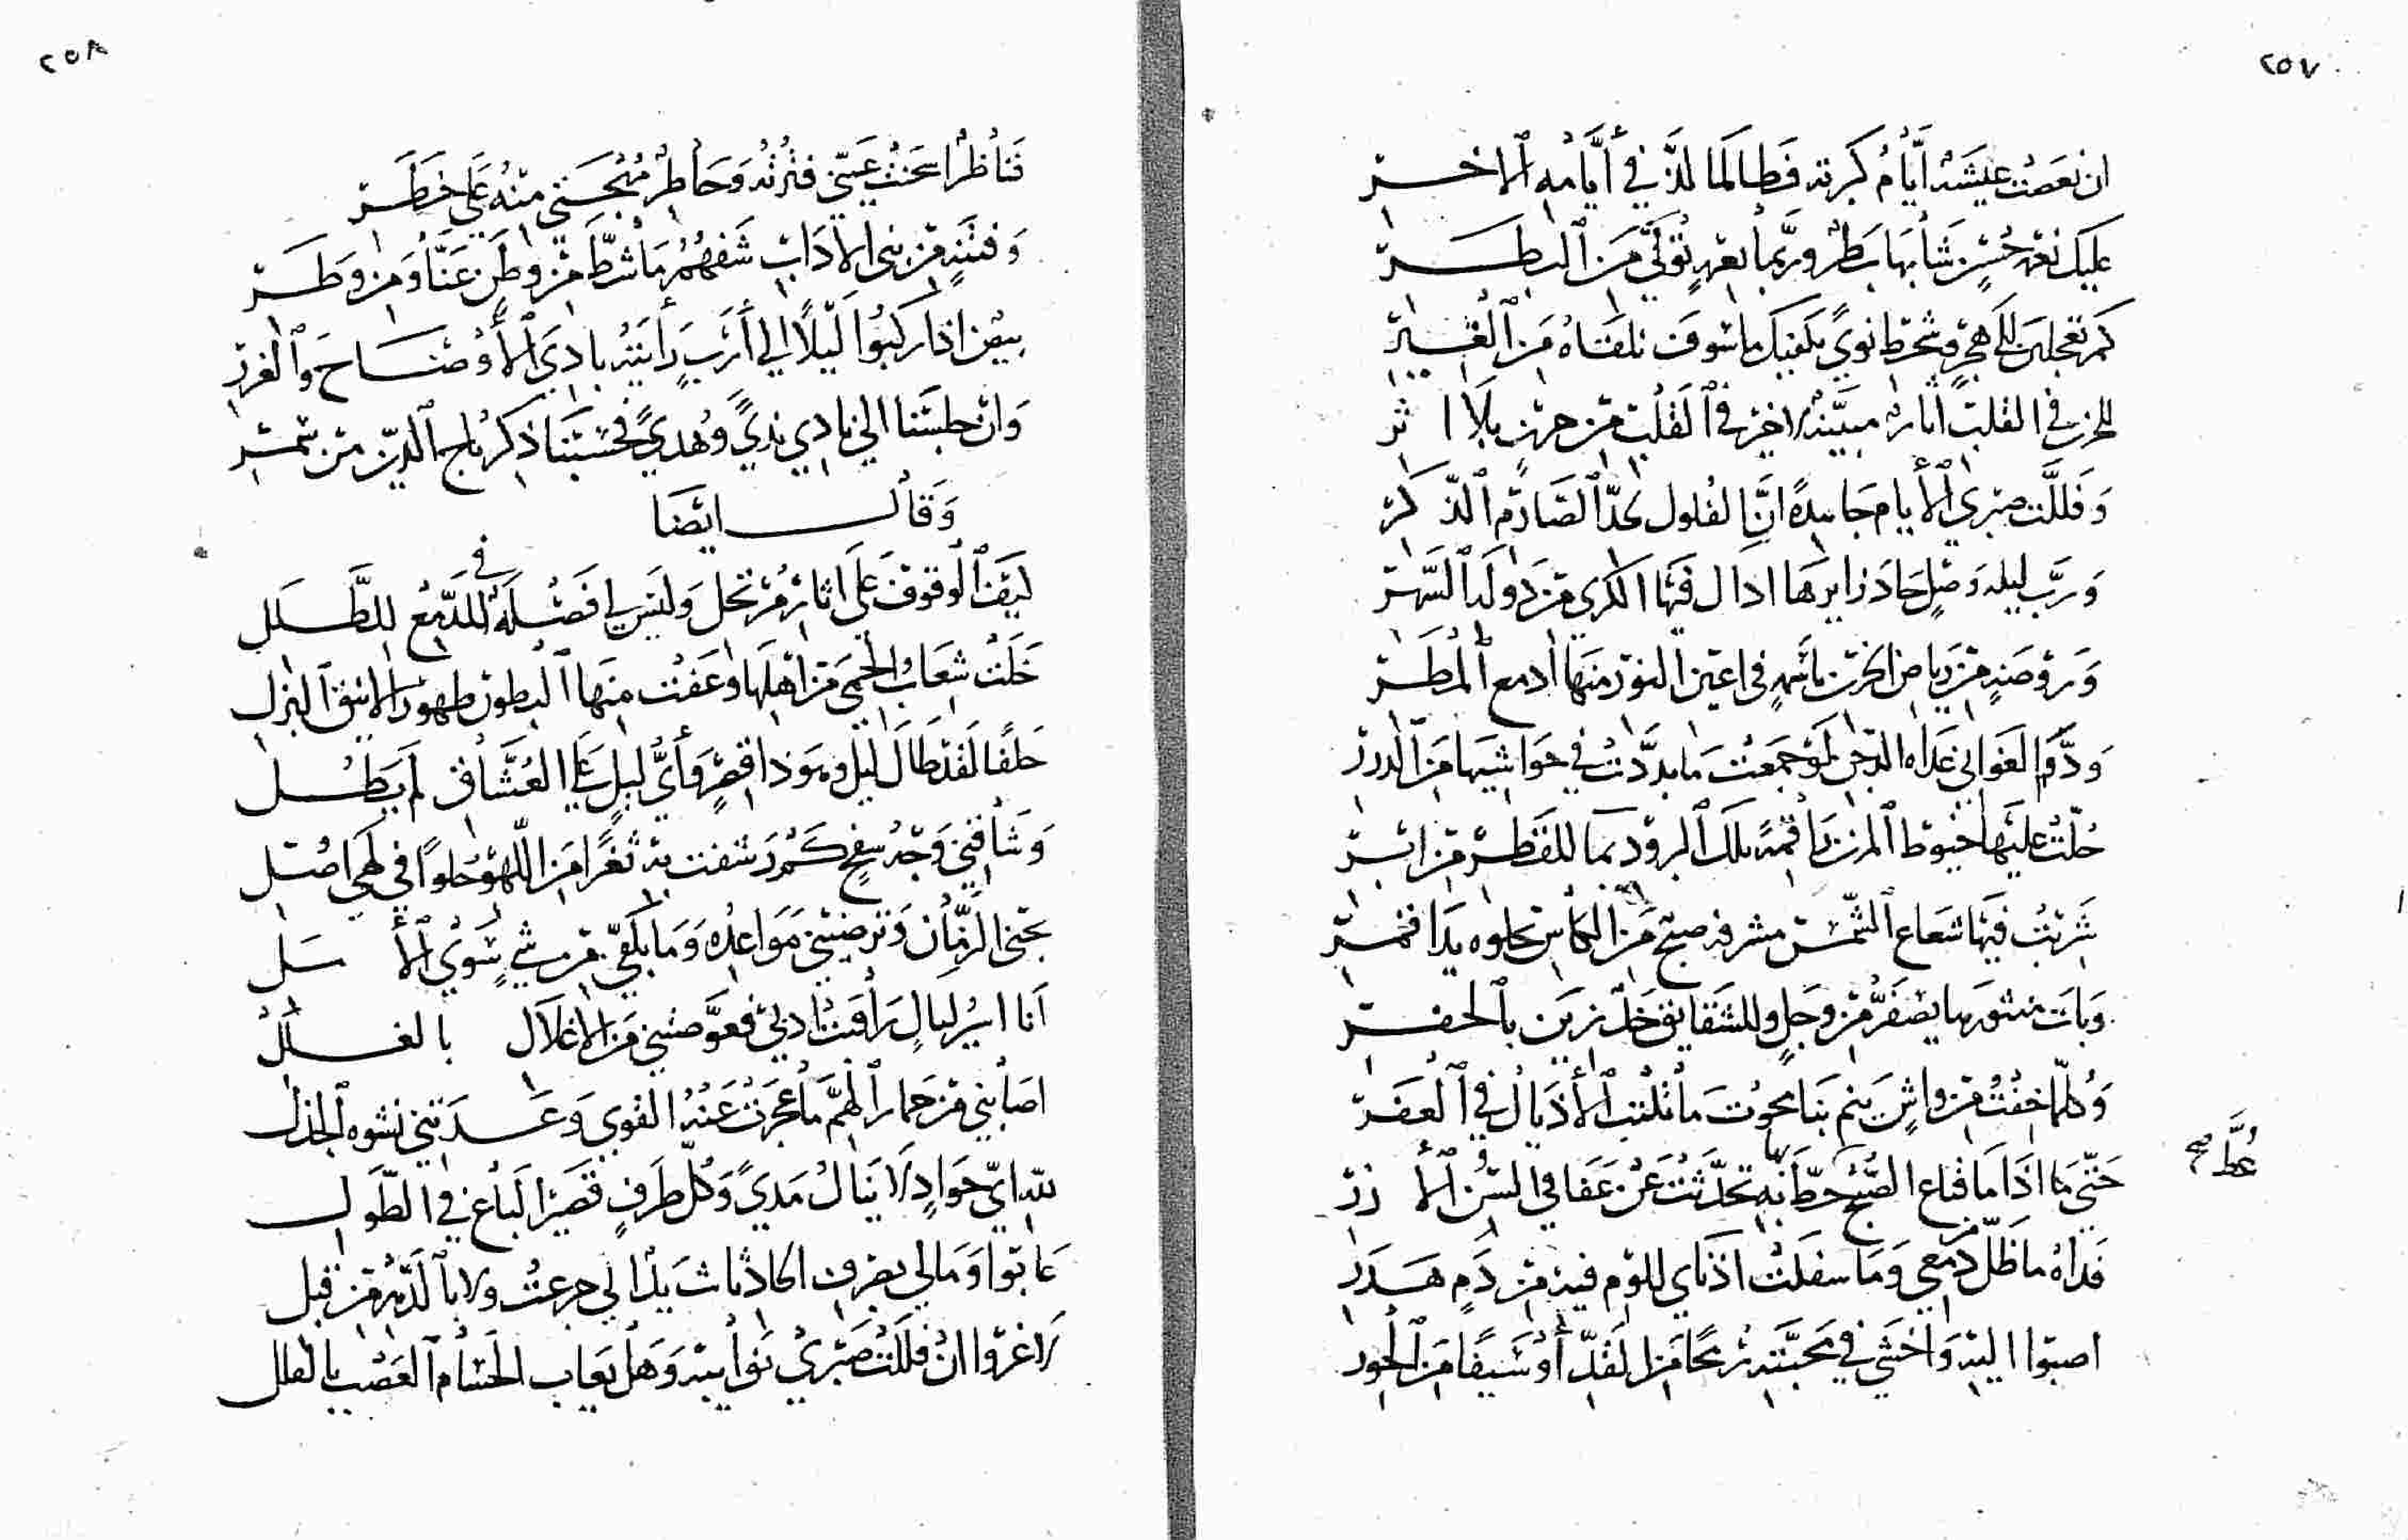 ٢٥٧
ان نغصت عيشه أيام كبرته فطالما لذ في أيامه الاخر
عليك نعمى حسنٍ شابها بطر وربما نعمةٍ تؤتى من البطر
كم تعجلين للهجرٍ وشحط نوىً يكفيك ما سوف نلقاه من الغير
للحزن في القلب اثار مبينة لا خير في القلب من حزنٍ بلا اثر
وفللت صبري الأيام جاهدةً ان الفلول بحد الصارم الذكر
ورب ليلة وصلٍ حاد زايرها ادال فيها الكرى من دولة السهر
وروضةٍ من رياض الحزن باسمةٍ في اعين النور منها أدمع المطر
ود الغواني غداة الدجن لو جمعت ما بددت في حواشيها من الدرر
حلت عليها خيوط المزن راقمةً تلك البرود بما للقطر من ابر
شربت فيها شعاع الشمس مشرفة صبح من الكاس تجلوه يدا قمر
وبات منثورها يصفر من وجلٍ وللشقايق خد زين بالخفر
وكلما خفت من واشٍ ينم بنا محوت ما تكتب الأذيال في العفر
عطـ صح
حتى ما اذا ما قناع الصبح حط به تحدثت عن عفافي السن الأزر
فداه ما ظل من دمعي وما سفكت اذناي للوم فيه من دمٍ هدر
اصبوا اليه واخشى في محبته رمحا من القد أو سيفا من الحور
٢٥٨
فناظر اسخنت عيني فترته وخاطر مهجتي منه على خطر
وفتيةٍ من بني الاداب شفهم ما شط من وطنٍ عنا ومن وطر
بيض اذا ركبوا ليلاً الي أربٍ رأيته بادي الأوضاح والغرر
وان جلسنا الي نادي ندىً وهدىً فحسبنا ذكر تاج الدين من سمر
وقال ايضا
ليقف الوقوف على اثار مرتحل وليس افضله في للدمع للطلل
خلت شعاب الحمى من اهلها وعفت منها البطون ظهور الانيق البزل
حلفا لقد طال ليل وهو ذا قصرٍ وأي ليلٍ على العشاق لم يطل
وشاقني وجد سفحٍ كم رشفت به ثغرا من اللهو حلواً في لمى اصل
يجني الزمان وترضيني مواعده وما بكفي من شيءٍ سوى الأمل
أنا اسير ليالٍ راقبت ادبي فعوضتني من الاغلال بالغلل
اصابني من خمار الهم ما عجزت عنه القوى وعدتني نشوة الجذل
لله اي جوادٍ لا ينال مدىً وكل طرفٍ قصير الباع في الطول
عاتبوا ومالي بصرف الحادثات يد الي جرعت ولا بالدهر من قبل
لا غروا ان فللت صبري نوائبه وهل يعاب الحسام العضب بالفلل